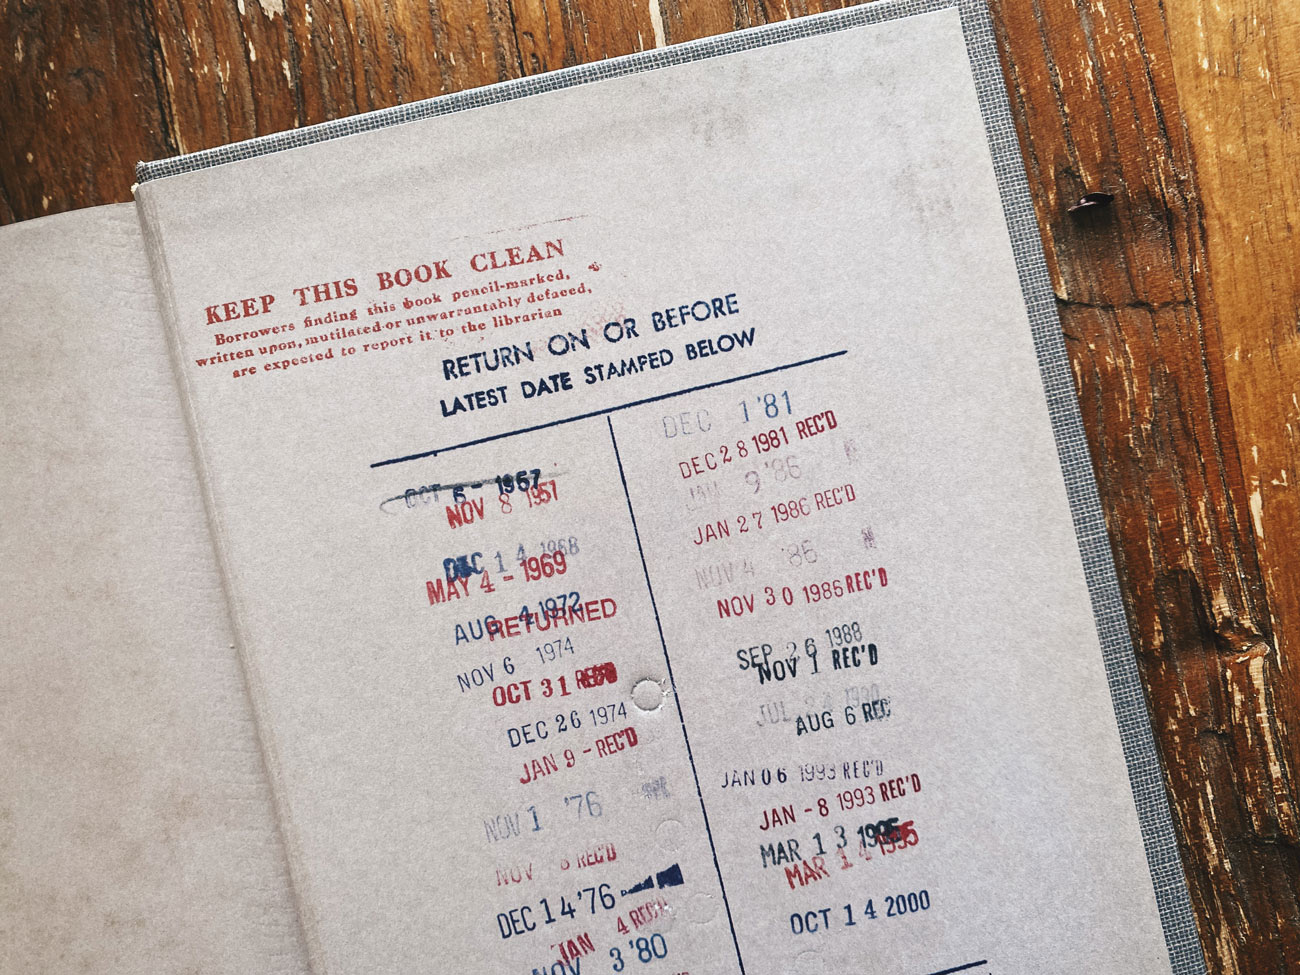 KEEP THIS BOOK CLEAN
Borrowers finding this book pencil-marked,
written upon, mutilated or unwarrantably defaced,
are expected to report it to the librarian
RETURN ON OR BEFORE
LATEST DATE STAMPED BELOW
OCT 6 - 1957
NOV 8 1957
DEC 14 1968
MAY 4 - 1969
AUG 4 1972
RETURNED
NOV 6 1974
OCT 31 REC'D
DEC 26 1974
JAN 9 - REC'D
NOV 1 '76
NOV 8 REC'D
DEC 14 '76
JAN 4 REC'D
NOV 3 '80
DEC 1 '81
DEC 28 1981 REC'D
JAN 9 '86
JAN 27 1986 REC'D
NOV 4 '86
NOV 30 1986 REC'D
SEP 26 1988
NOV 1 REC'D
JUL 1990
AUG 6 REC
JAN 06 1993 REC'D
JAN - 8 1993 REC'D
MAR 13 1995
MAR 14 1995
OCT 14 2000